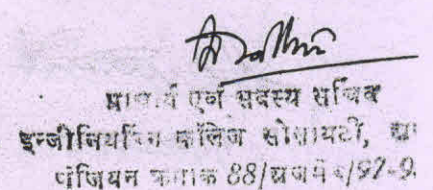 प्राचार्य एवं सदस्य सचिव
इन्जीनियरिंग कॉलिज सोसायटी,
पंजियन क्रमांक 88/अजमेर/97-9